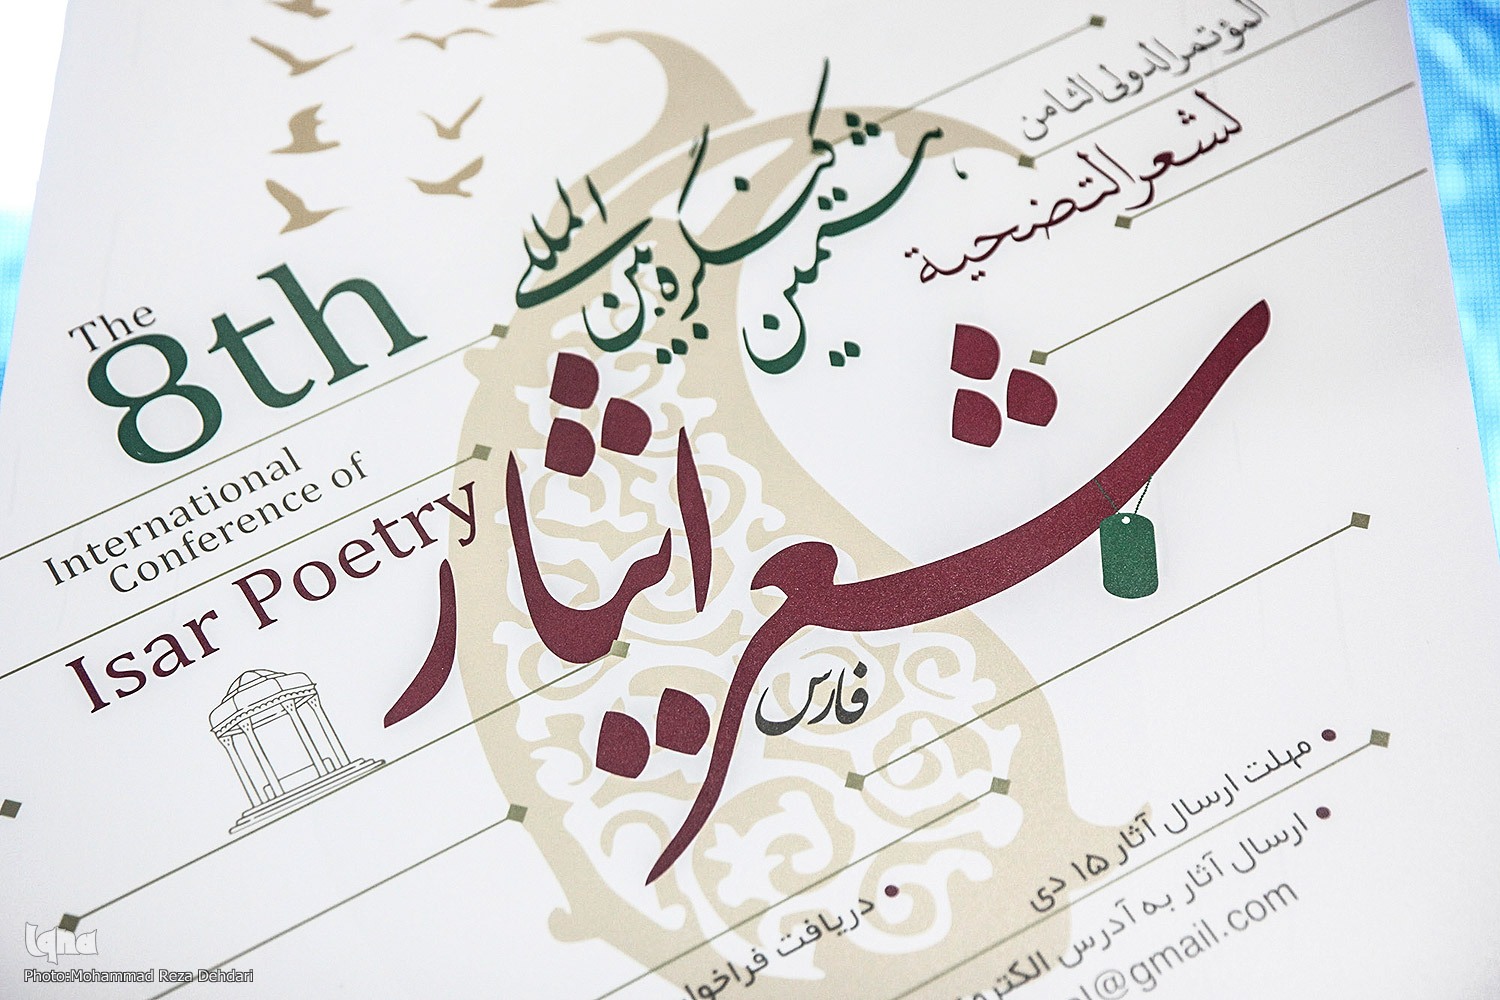 المؤتمر الدولي الثامن
لشعر التضحية
هشتمین کنگره بین المللی
شعر ایثار
فارس
The
8th
International
Conference of
Isar Poetry
مهلت ارسال آثار ۱۵ دی
ارسال آثار به آدرس
@gmail.com
دریافت
Iqna
Photo:Mohammad Reza Dehdari